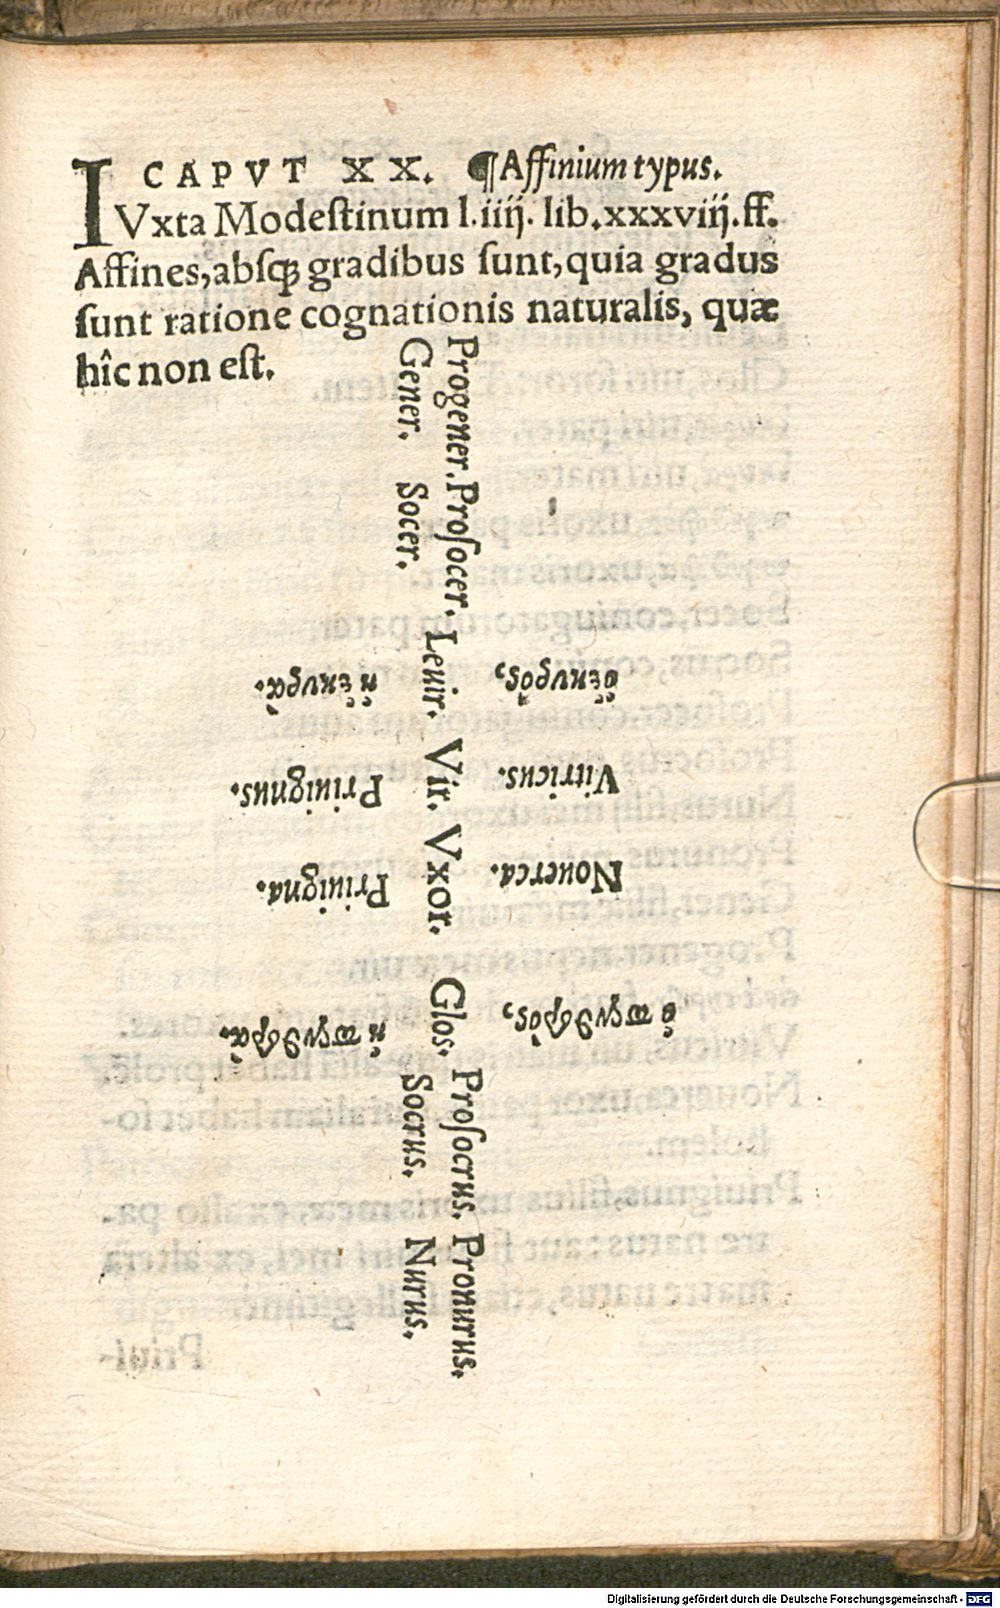 CAPVT XX. ¶Affinium typus.
IVxta Modeſtinum l.iiij. lib.xxxviij.ff.
Affines,abſqꝫ gradibus ſunt,quia gradus
ſunt ratione cognationis naturalis, quæ
hîc non eſt.
Progener. Proſocer.
Gener. Socer.
Leuir. Vir. Vxor. Glos.
Proſocrus. Pronurus.
Socrus. Nurus.
ὁ ἑκυρὸς,
ἡ ἑκυρὰ.
Vitricus.
Priuignus.
Nouerca.
Priuigna.
ὁ πενθερὸς,
ἡ πενθερὰ.
Digitalisierung gefördert durch die Deutsche Forschungsgemeinschaft - DFG